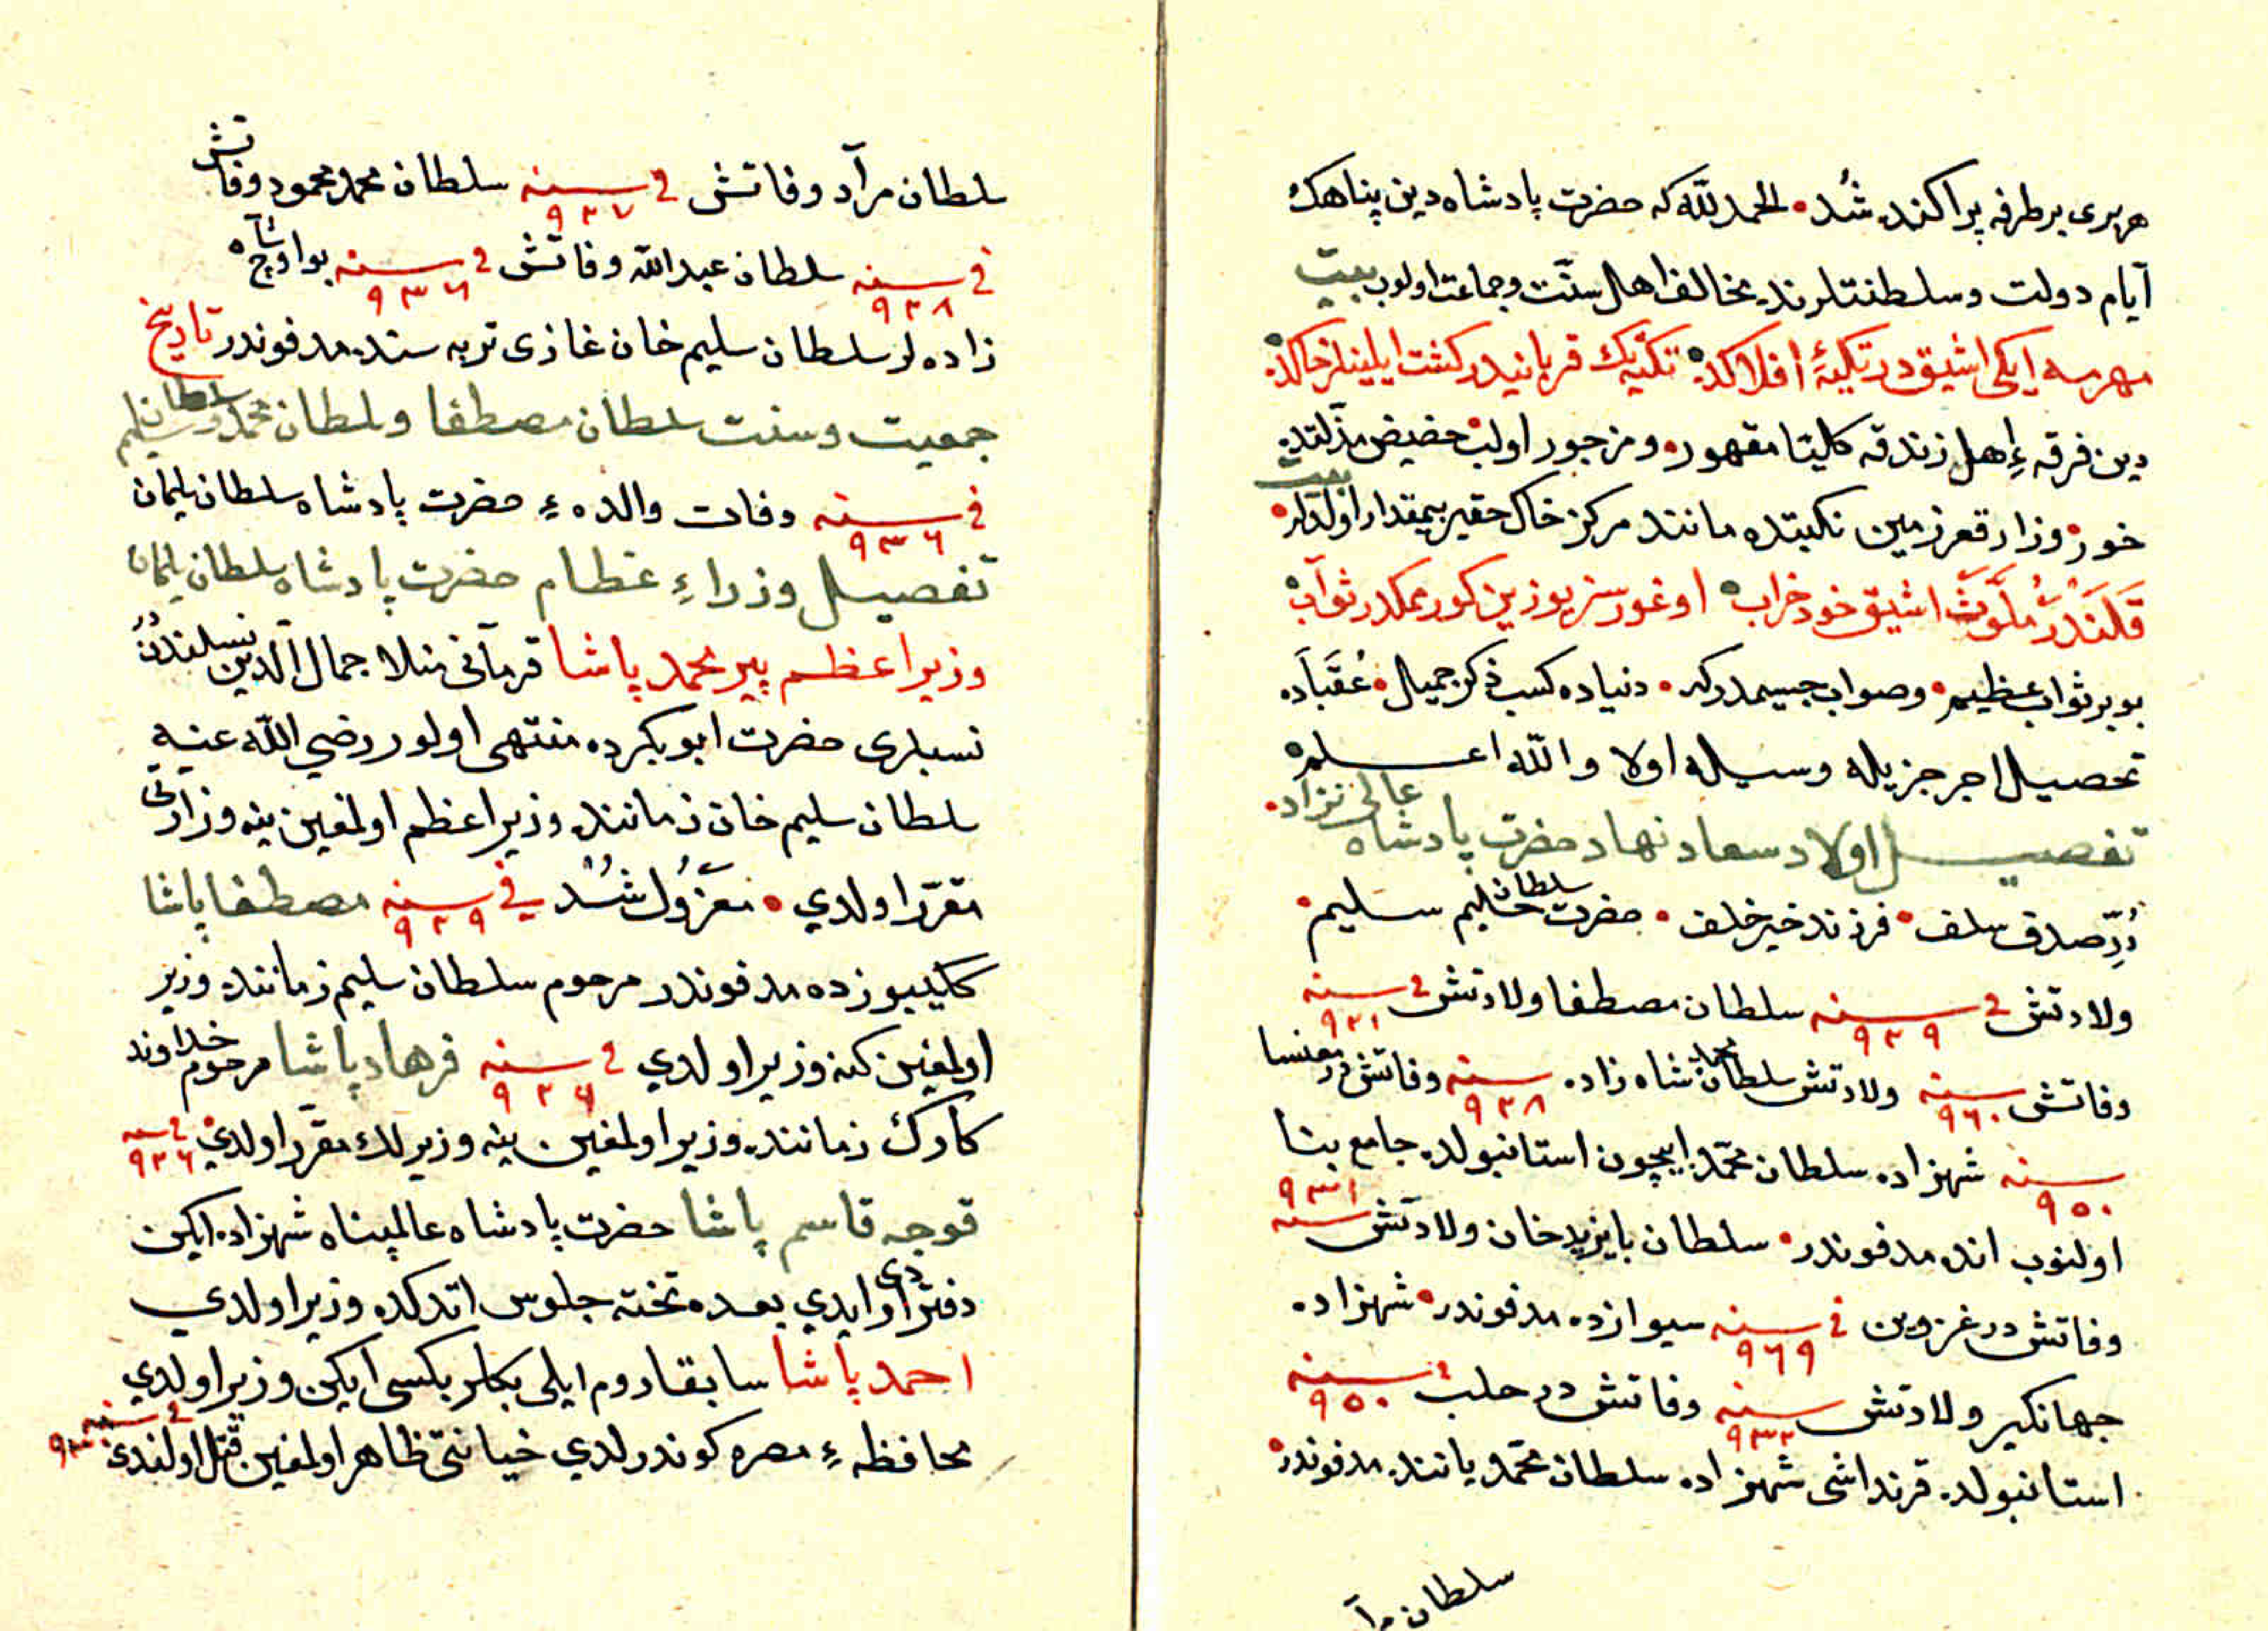 هر بری بر طرفه پراکنده شد • الحمد لله که حضرت پادشاه دین پناهك
ایام دولت وسلطنتلرنده مخالف اهل سنّت وجماعت اولوب بیت
ایکی اشیق در تکیۀ افلاکده تکیه‌ك قربانیدر کشت ایلینلر خاکده
دین فرقه ءِ اهل زندقه کلیتا مقهور • ومزجور اولب حضیض مذلتده
خور وزار قعر زمین نکبتده مانند مرکز خاك حقیر بیمقدار اولدلر • بیت
قلندر ملوث اشیق خود خراب اوغورسز یوزین کورمکدر ثواب
بو بر ثواب عظیم • وصواب جسیمدر که • دنیاده کسب ذکر جمیل • عقباده
تحصیل اجر جزیله وسیله اولا والله اعلم
تفصیل اولاد سعاد نهاد حضرت پادشاه عالی نژاد •
دُرّ صدف سلف • فرزند خیر خلف • حضرت سلطان سلیم •
ولادتش فی سنه ٩٢٩ سلطان مصطفا ولادتش فی سنه ٩٢١
وفاتش سنه ٩٦٠ ولادتش سلطان محمد شاه زاده سنه ٩٢٨ وفاتش در مغنسا
سنه ٩٥٠ شهزاده سلطان محمّد ایچون استانبولده جامع بنا
اولنوب انده مدفوندر • سلطان بایزید خان ولادتش سنه ٩٣١
وفاتش در غزوین فی سنه ٩٦٩ سیوازده مدفوندر • شهزاده
جهانکیر ولادتش سنه ٩٣٢ وفاتش در حلب فی سنه ٩٥٠
استانبولده قرنداشی شهزاده سلطان محمّد یاننده مدفوندر
سلطان مرآ
سلطان مرآد وفاتش فی سنه ٩٢٧ سلطان محمد محمود وفاتش
فی سنه ٩٢٨ سلطان عبد الله وفاتش فی سنه ٩٣٢ بو اوچ شاه
زاده لر سلطان سلیم خان غازی تربه سنده مدفوندر تاریخ
جمعیت وسنت سلطان مصطفا وسلطان محمد وسلطان سلیم
فی سنه ٩٣٦ وفات والده ءِ حضرت پادشاه سلطان سلیمان
تفصیل وزراءِ عظام حضرت پادشاه سلطان سلیمان
وزیر اعظم پیر محمد پاشا قرمانی منلا جمال الدین نسلندندر
نسبلری حضرت ابو بکرده منتهی اولور رضي الله عنه
سلطان سلیم خان زماننده وزیر اعظم اولمغین ینه وزارتی
مقرّر اولدي • معزول شد في سنه ٩٢٩ مصطفا پاشا
ککیبوزده مدفوندر مرحوم سلطان سلیم زماننده وزیر
اولمغین کنه وزیر اولدي فی سنه ٩٢٦ فرهاد پاشا مرحوم خداوند
کارك زماننده وزیر اولمغین ینه وزیرلك مقرّر اولدي فی سنه ٩٢٦
قوجه قاسم پاشا حضرت پادشاه عالمپناه شهزاده ایکن
دفتردارى ایدي بعده تخته جلوس اتدکده وزیر اولدي
احمد پاشا سابقا روم ایلی بکلربکسی ایکن وزیر اولدي
محافظه ءِ مصره کوندرلدي خیانتی ظاهر اولمغین قتل اولندي فی سنه ٩٣٠